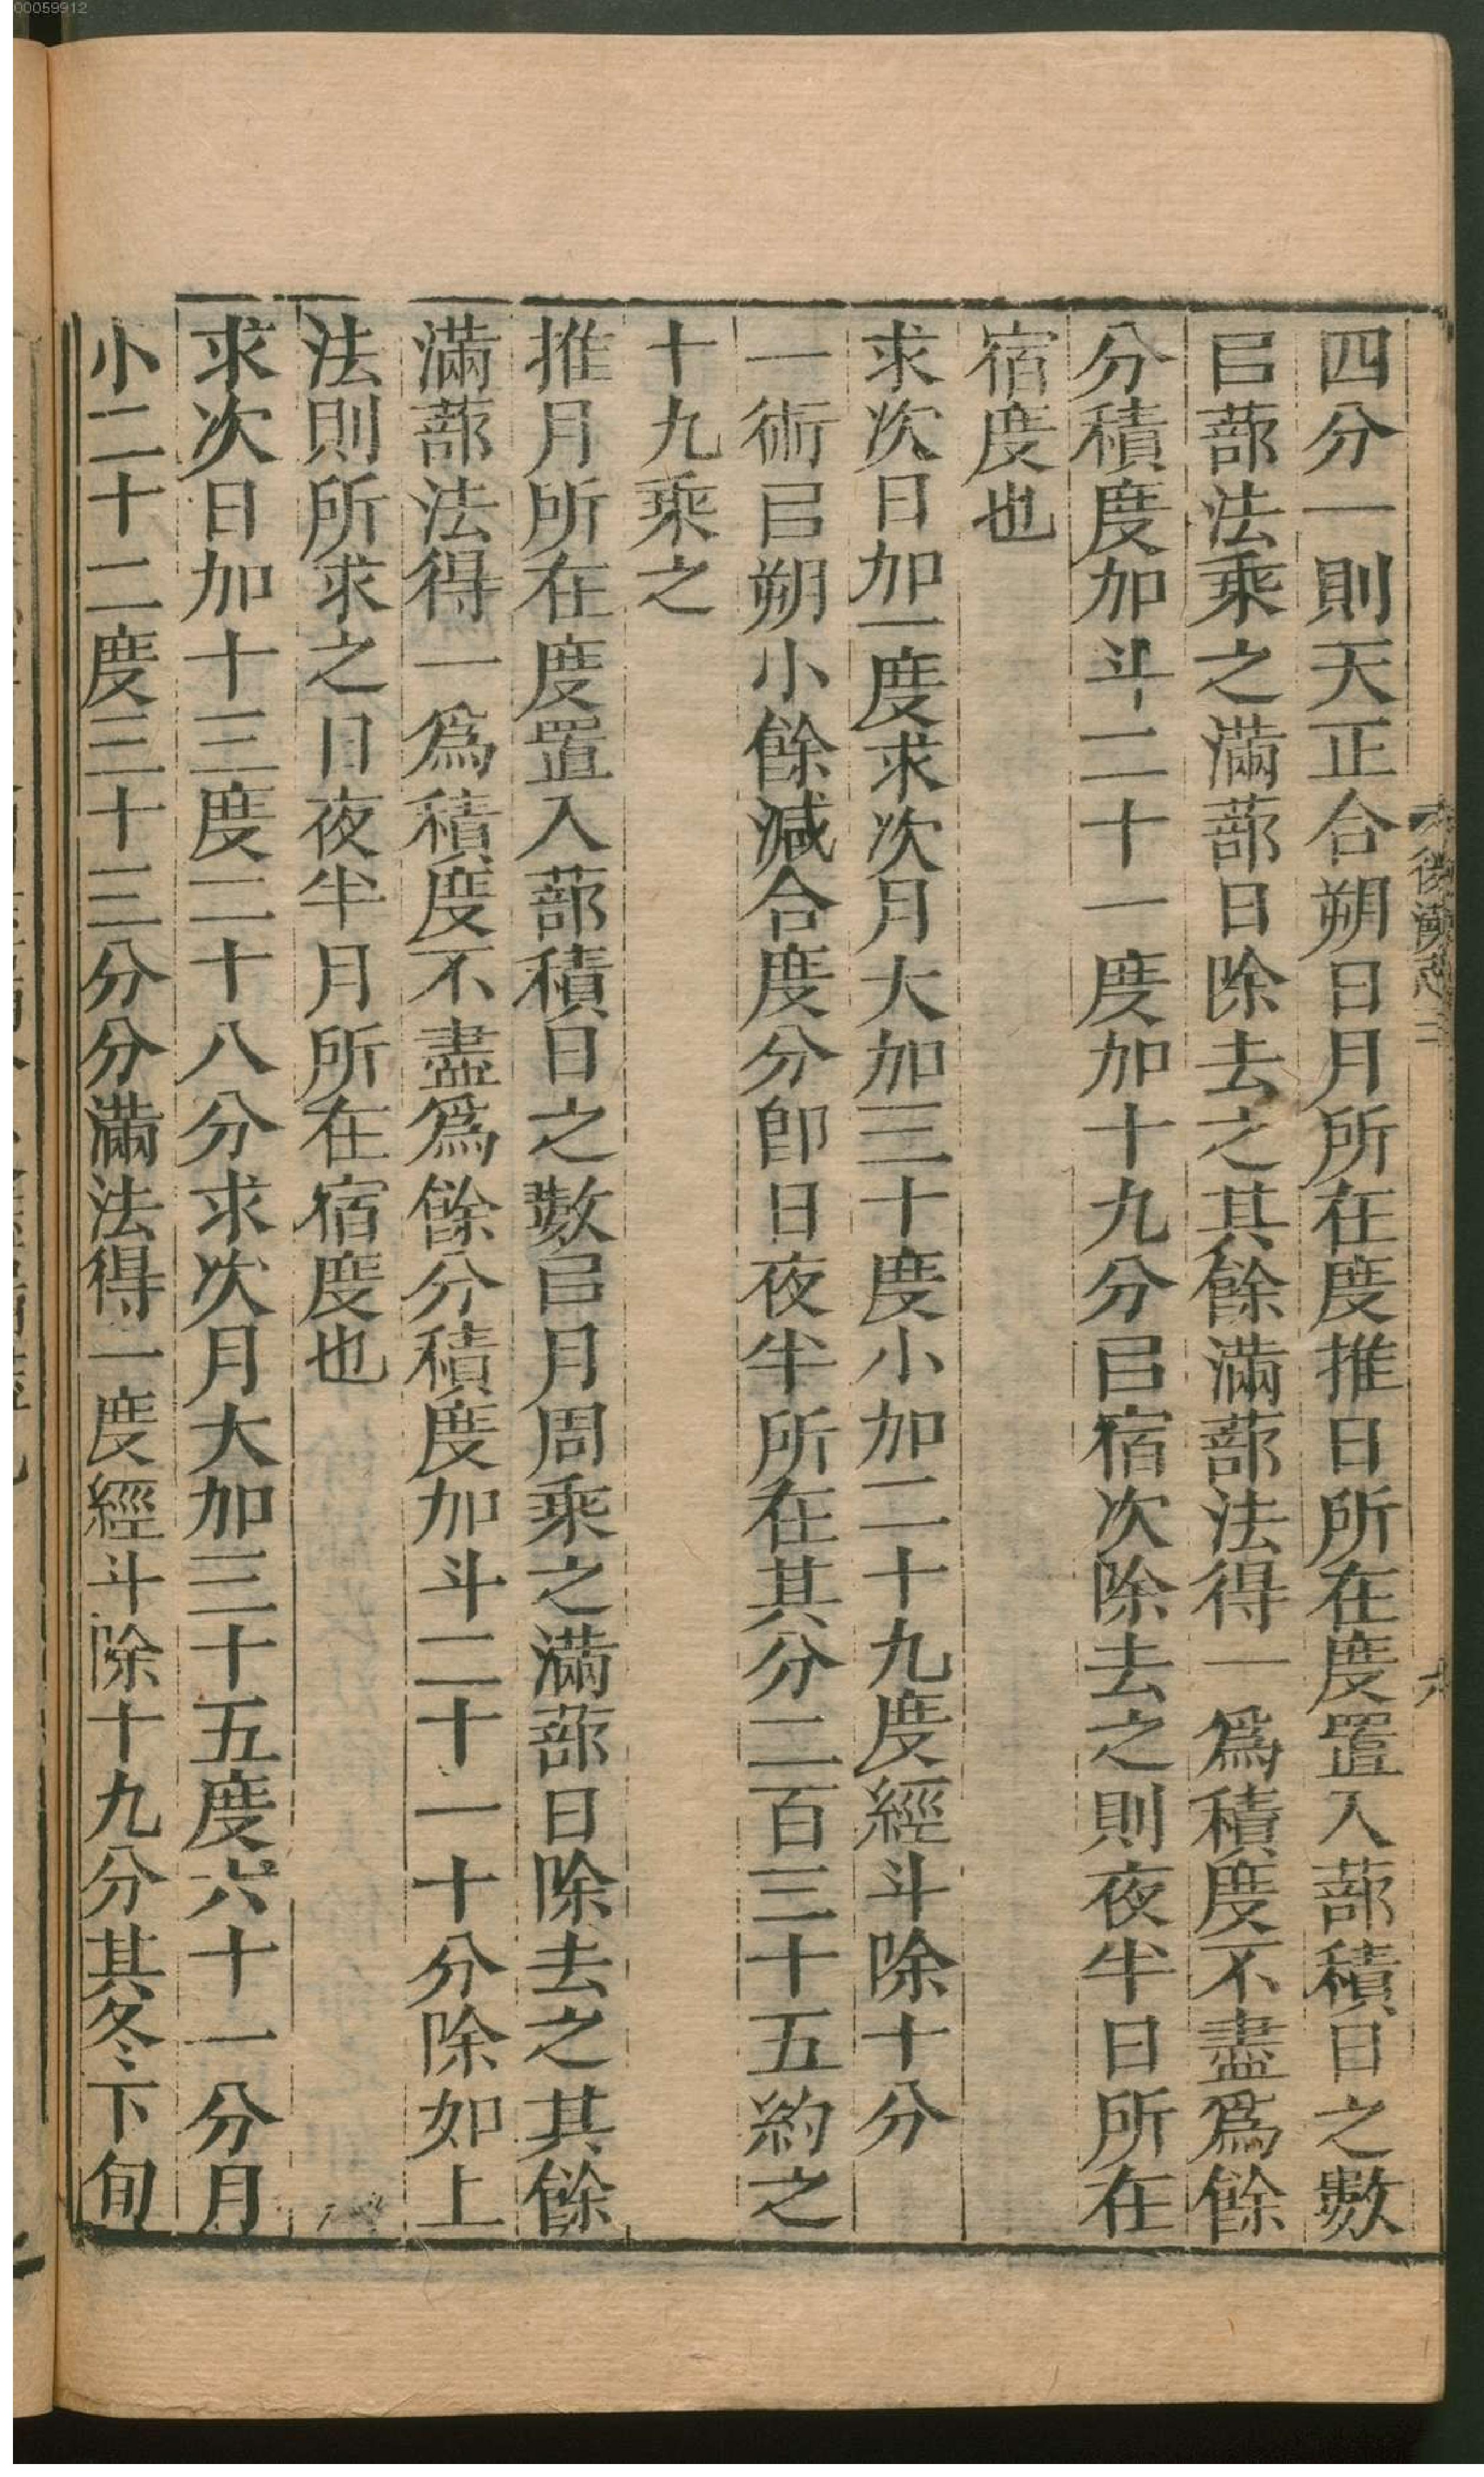 00059912
後漢志三
六
四分一則天正合朔日月所在度推日所在度置入蔀積日之數
㠯蔀法乘之滿蔀日除去之其餘滿蔀法得一爲積度不盡爲餘
分積度加斗二十一度加十九分㠯宿次除去之則夜半日所在
宿度也
求次日加一度求次月大加三十度小加二十九度經斗除十分
一術㠯朔小餘減合度分卽日夜半所在其分二百三十五約之
十九乘之
推月所在度置入蔀積日之數㠯月周乘之滿蔀日除去之其餘
滿蔀法得一爲積度不盡爲餘分積度加斗二十一十分除如上
法則所求之日夜半月所在宿度也
求次日加十三度二十八分求次月大加三十五度六十一分月
小二十二度三十三分分滿法得一度經斗除十九分其冬下旬